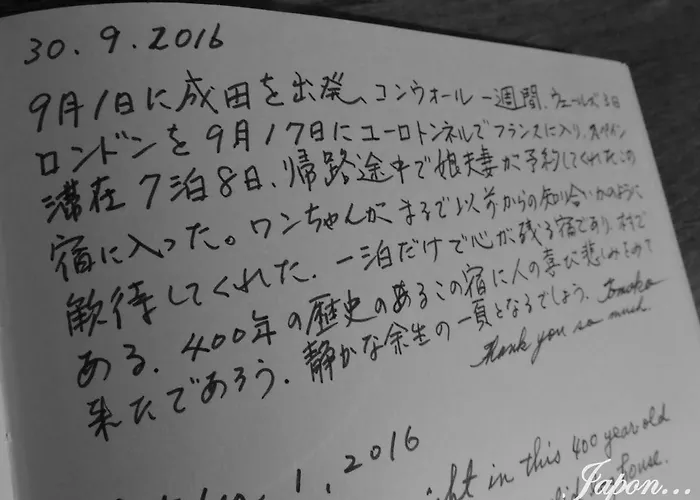 30.9.2016
9月1日に成田を出発、コンウォール一週間、ウェールズ3日
ロンドンを9月17日にユーロトンネルでフランスに入り、スペイン
滞在7泊8日、帰路途中で娘夫妻が予約してくれたこの
宿に入った。ワンちゃんがまるで以前からの知り合いかのように
歓待してくれた。一泊だけで心が残る宿であり、村で
ある。400年の歴史のあるこの宿に人の喜び悲しみをみて
来たであろう。静かな余生の一頁となるでしょう。Tomoko
Thank you so much.
1, 2016
in this 400 year old
house.
Japon...